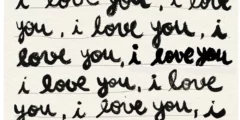 you, i love
you, i love you, i
love you, i love you
i love you, i love
you, i love you, is